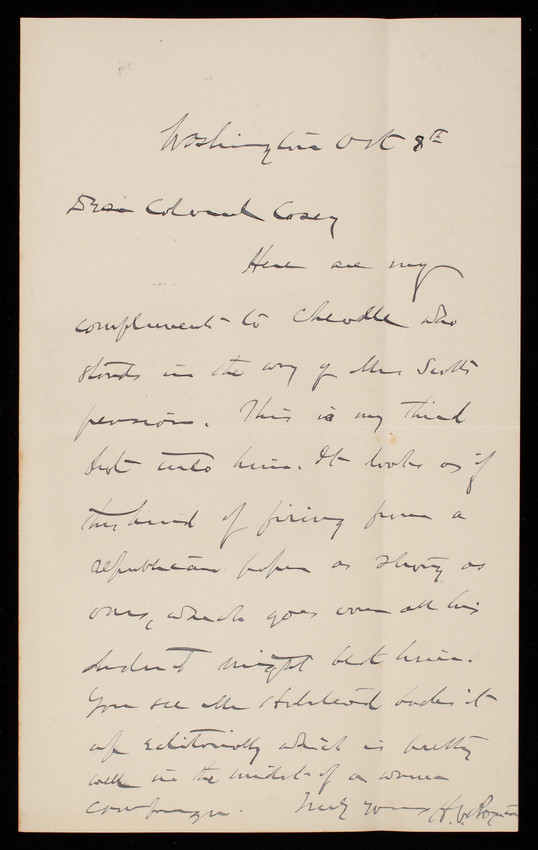 Washington Oct 8th
Dear Colonel Casey
Here are my
compliments to Cheadle who
stands in the way of Mrs Scotts
pension. This is my third
shot into him. It looks as if
this kind of firing from a
republican paper as strong as
ours, which goes over all his
district might beat him.
You see Mr Halstead backs it
up editorially which is pretty
well in the midst of a warm
campaign. Truly yours H.V. Boynton